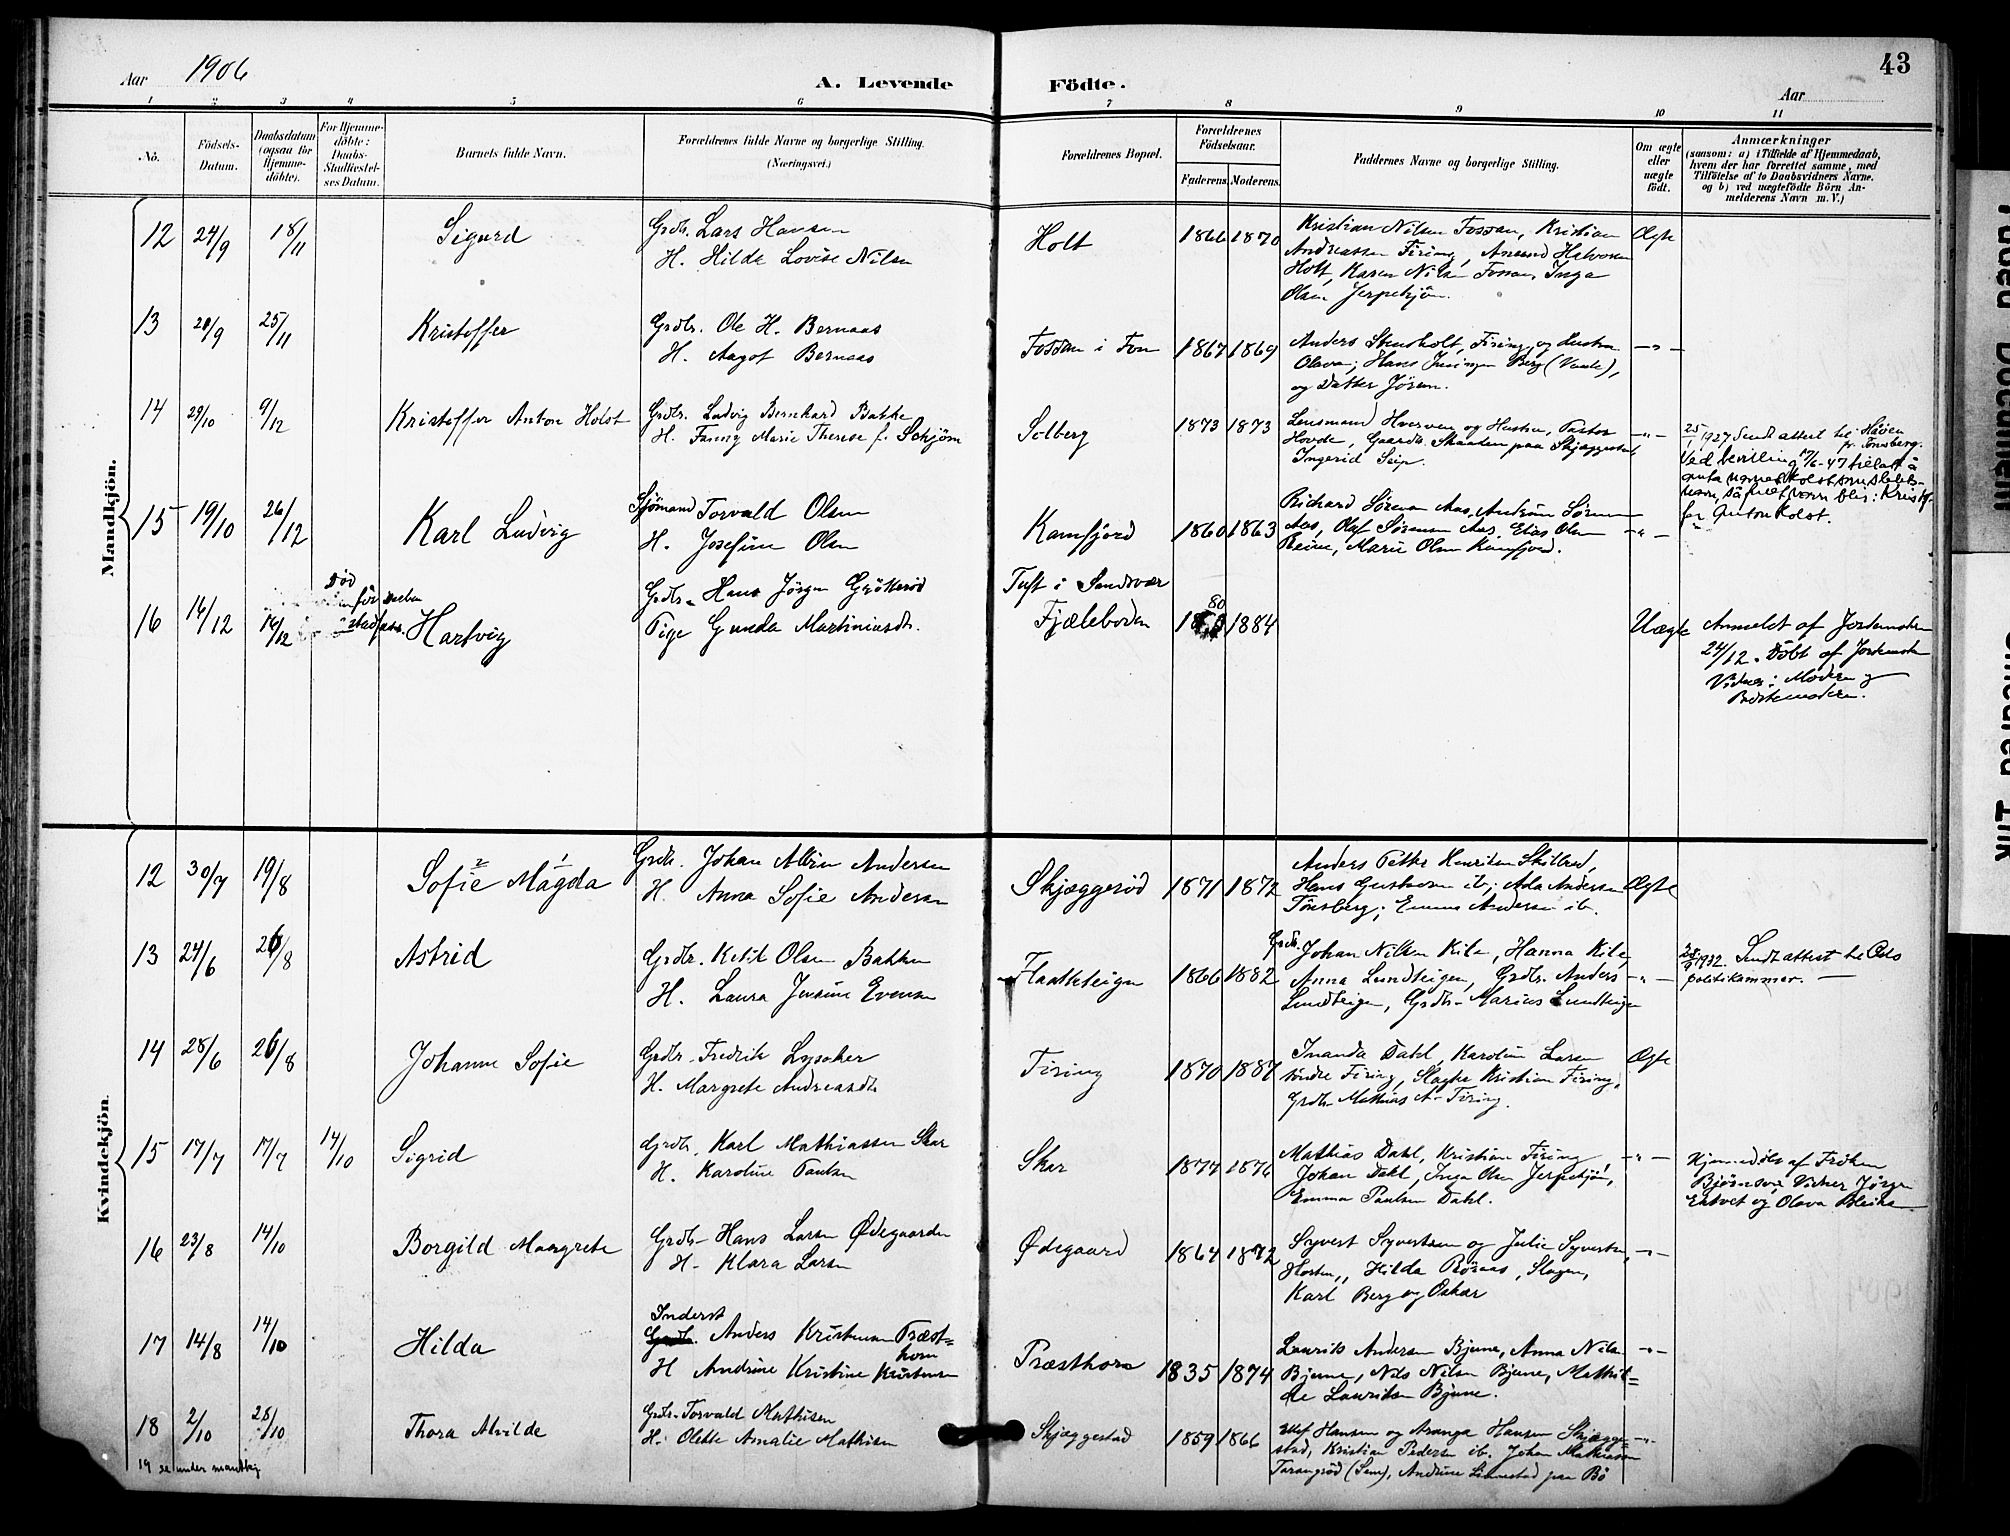 Aar 1906
A. Levende Födte.
43
Aar
1 2 3 4 5 6 7 8 9 10 11
No.
Födsels-Datum.
Daabsdatum (ogsaa for Hjemme-döbte).
For Hjemme-döbte: Daabs-Stadfæstel-ses Datum.
Barnets fulde Navn.
Forældrenes fulde Navne og borgerlige Stilling.
(Næringsvei.)
Forældrenes Bopæl.
Forældrenes Födselsaar.
Faderens. Moderens.
Faddernes Navne og borgerlige Stilling.
Om ægte eller uægte födt.
Anmærkninger
(saasom: a) i Tilfælde af Hjemmedaab,
hvem der har forrettet samme, med
Tilföielse af to Daabsvidners Navne,
og b) ved uægtefödte Börn An-
melderens Navn m. V.)
Mandkjön.
12 24/9 18/11 Sigurd
Grdb. Lars Hansen
H. Hilda Lovise Nilsen
Holt 1866 1870
Kristian Nilsen Fossan, Kristian
Andreassen Firing, Amund Halvorsen
Holt, Karen Nilsen Fossan, Inga
Olsen Jerpekjøn.
Ægte
13 20/9 25/11 Kristoffer
Grdbr. Ole H. Bernaas
H. Aagot Bernaas
Fossan i Fon 1867 1869
Anders Stensholt, Firing, og Hustru
Olava; Hans Berg (Vaale),
og Datter Jøran.
—"—
14 29/10 9/12 Kristoffer Anton Holst
Grdbr. Ludvig Bernhard Bakke
H. Fanny Marie Therese f. Schjøm
Solberg 1873 1873
Lensmand Hverven og Hustru, Pastor
Hovde, Gaardb. Skaaden paa Skjæggestad,
Ingerid Seip.
—"—
25/1 1927 Sendt attest til Haven
pr. Tønsberg.
Ved bevilling 17/6-47 tillatt å
anta navnet Holst som slekts-
navn, så fullt navn blir: Kristof-
fer Anton Holst.
15 19/10 26/12 Karl Ludvig
Sjømand Torvald Olsen
H. Josefine Olsen
Kamfjord 1860 1863
Richard Sørensen Aas, Andrine Sørensen
Aas, Olaf Sørensen Aas, Elias Olsen
Reine, Marie Olsen Kamfjord.
—"—
16 14/12 14/12 Død før Daaben stadfæst. Hartvig
Grdbr. Hans Jørgen Gjøtterød
Pige Gunda Martiniusdtr.
Tuft i Sandsvær
Fjæleboden 80 1884
Uægte
Anmeldt af Jordemoderen
24/12. Døbt af Jordemoder
Vidner: Moderen og
Bedstemoderen.
Kvindekjön.
12 30/7 19/8 Sofie 2 Magda 1
Grdb. Johan Albin Andersen
H. Anna Sofie Andersen
Skjæggerød 1871 1872
Anders Petter Henriksen Skillerød,
Hans Gustavsen ib.; Ada Andersen
Tönsberg; Emma Andersen ib.
Ægte
13 24/6 26/8 Astrid
Grdbr. Ketil Olsen Bakken
H. Laura Jensine Evensen
Flaatteteigen 1866 1882
Grdb. Johan Nilsen Kile, Hanna Kile,
Anna Lundteigen, Grdbr. Anders
Lundteigen, Grdbr. Marius Lundteigen
—"—
28/9 1932. Sendt attest til Oslo
politikammer. —
14 28/6 26/8 Johanne Sofie
Grdbr. Fredrik Lysaker
H. Margrete Andreasdtr
Firing 1870 1887
Inanda Dahl, Karoline Larsen
søndre Firing, Slagter Kristian Firing,
Grdbr. Mathias A. Firing.
Ægte
15 17/7 17/7 14/10 Sigrid
Grdbr. Karl Mathiassen Skar
H. Karoline Paulsen
Skar 1877 1876
Mathias Dahl, Kristian Firing
Johan Dahl, Inga Olsen Jerpekjøn,
Emma Paulsen Dahl.
—"—
Hjemmedøbt af Frøken
Bjørnson, Vidner Jørgen
og Olava
16 23/8 14/10 Borgild Margrete
Grdbr. Hans Larsen Ødegaarden
H. Klara Larsen
Ødegaard 1864 1872
Syvert Syvertsen og Julie Syvertsen,
Horten,, Hilda Röraas, Slagen,
Karl Berg og Oskar
—"—
17 14/8 14/10 Hilda
Inderst
Grdb. Anders Kristensen Præst=
horn
H Andrine Kristine Kristensen
Præsthorn 1835 1874
Laurits Andersen Bjune, Anna Nilsen
Bjune, Nils Nilsen Bjune, Mathil=
de Lauritsen Bjune.
—"—
18 2/10 28/10 Thora Alvilde
Grdbr. Torvald Mathisen
H. Olette Amalie Mathisen
Skjæggestad 1859 1866
Ellef Hansen og Aranga Hansen Skjægge=
stad, Kristian Pedersen ib. Johan Mathiasen
Tarangrød (Sem), Andrine Linnestad paa Bö
—"—
19 se under mandkj.